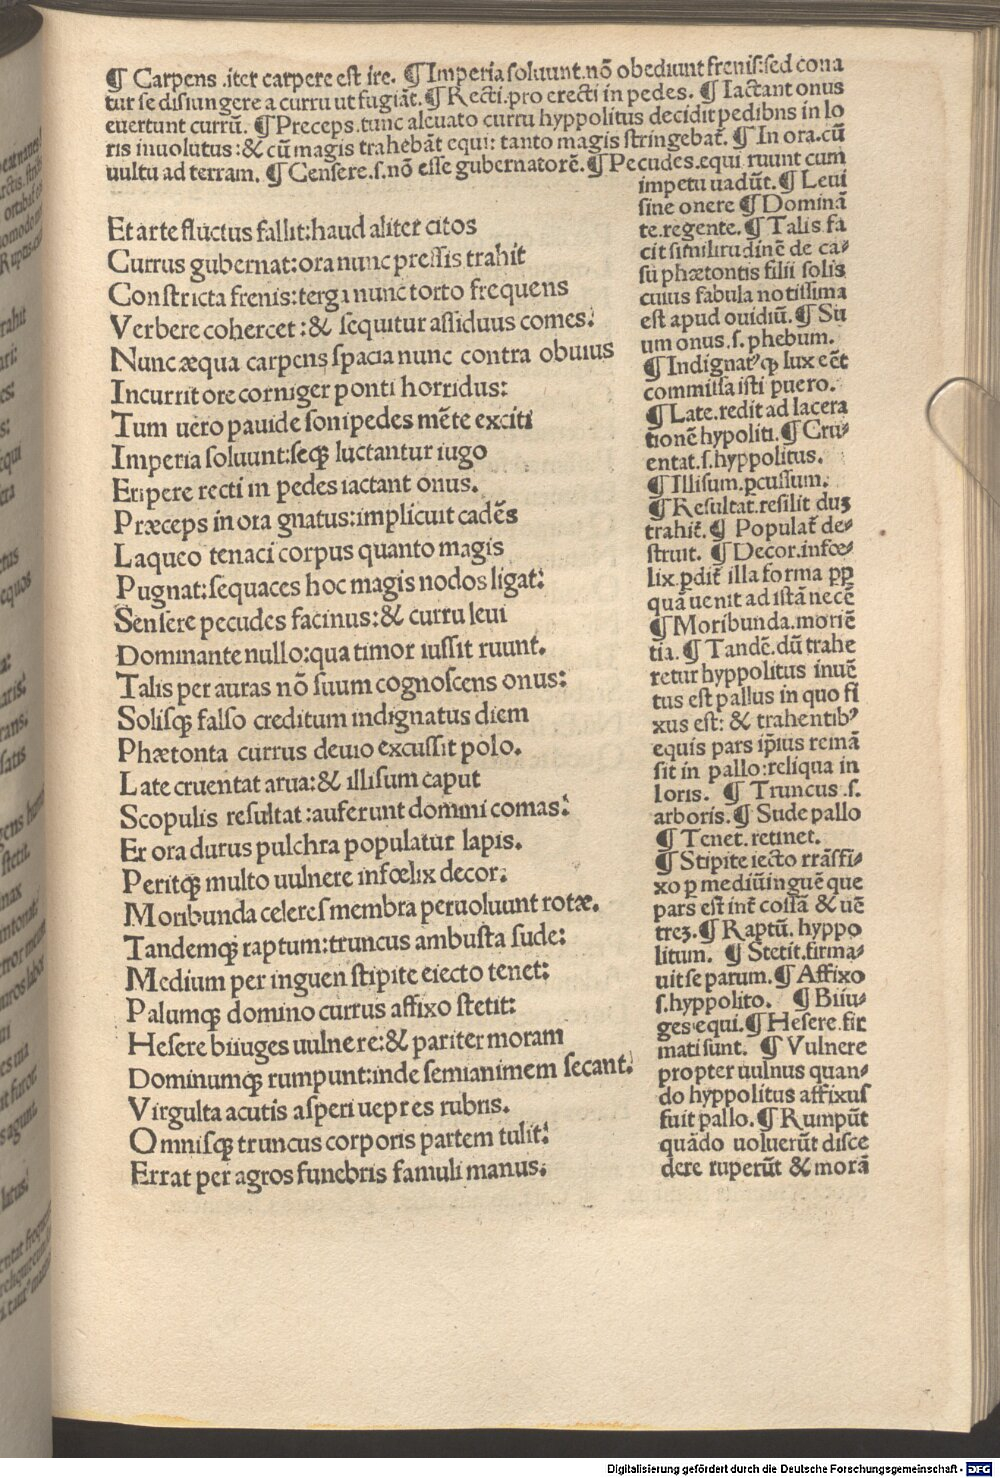 ¶ Carpens .iter carpere est ire. ¶ Imperia soluunt.nō obediunt frenis:sed cona
tur se disiungere a curru ut fugiāt.¶ Recti.pro erecti in pedes. ¶ Iactant onus
euertunt currū. ¶ Preceps.tunc alcuato curru hyppolitus decidit pedibns in lo
ris inuolutus:& cū magis trahebāt equi: tanto magis stringebat̄. ¶ In ora.cū
uultu ad terram. ¶ Censere.s.nō esse gubernatorē.¶ Pecudes.equi ruunt cum
impetu uadūt.¶ Leui
sine onere ¶ Dominā
te.regente.¶ Talis fa
cit similitudinē de ca-
su phætontis filii solis
cuius fabula notissima
est apud ouidiū.¶ Su
um onus.s. phebum.
¶ Indignat᷒ ꝙ lux eēt
commissa isti puero.
¶ Late.redit ad lacera
tionē hypoliti.¶ Cru-
entat.s.hyppolitus.
¶ Illisum.ꝑcussum.
¶ Resultat.resilit duꝫ
trahit̄.¶ Populat̄ de-
struit. ¶ Decor.infœ-
lix.ꝑdit̄ illa forma ꝓꝑ
quā uenit ad istā necē
¶ Moribunda.moriē
tia.¶ Tandē.dū trahe
retur hyppolitus inuē
tus est pallus in quo fi
xus est: & trahentib᷒
equis pars ip̄ius remā
sit in pallo:reliqua in
loris. ¶ Truncus .s.
arboris.¶ Sude pallo
¶ Tenet. retinet.
¶ Stipite iecto trāsfi-
xo ꝑ mediū inguē que
pars est int̄ cossā & uē
treꝫ.¶ Raptū. hyppo
litum. ¶ Stetit.firma-
uit se parum.¶ Affixo
s.hyppolito. ¶ Biiu-
ges.equi.¶ Hesere.fir
mati sunt. ¶ Vulnere
propter uulnus quan-
do hyppolitus affixus
fuit pallo.¶ Rumpūt
quādo uoluerūt disce
dere ruperūt & morā
Et arte fluctus fallit:haud aliter citos
Currus gubernat:ora nunc pressis trahit
Constricta frenis:terga nunc torto frequens
Verbere cohercet :& sequitur assiduus comes:
Nunc æqua carpens spacia nunc contra obuius
Incurrit ore corniger ponti horridus:
Tum uero pauide sonipedes mēte exciti
Imperia soluunt:seqꝫ luctantur iugo
Eripere recti in pedes iactant onus.
Præceps in ora gnatus:implicuit cadēs
Laqueo tenaci corpus quanto magis
Pugnat:sequaces hoc magis nodos ligat:
Sensere pecudes facinus:& curru leui
Dominante nullo:qua timor iussit ruunt.
Talis per auras nō suum cognoscens onus:
Solisqꝫ falso creditum indignatus diem
Phætonta currus deuio excussit polo.
Late cruentat arua:& illisum caput
Scopulis resultat :auferunt domini comas:
Et ora durus pulchra populatur lapis.
Peritqꝫ multo uulnere infœlix decor:
Moribunda celeres membra peruoluunt rotæ.
Tandemqꝫ raptum:truncus ambusta sude:
Medium per inguen stipite eiecto tenet:
Palumqꝫ domino currus affixo stetit:
Hesere biiuges uulnere:& pariter moram
Dominumqꝫ rumpunt:inde semianimem secant:
Virgulta acutis asperi uepres rubris.
Omnisqꝫ truncus corporis partem tulit:
Errat per agros funebris famuli manus:
Digitalisierung gefördert durch die Deutsche Forschungsgemeinschaft - DFG